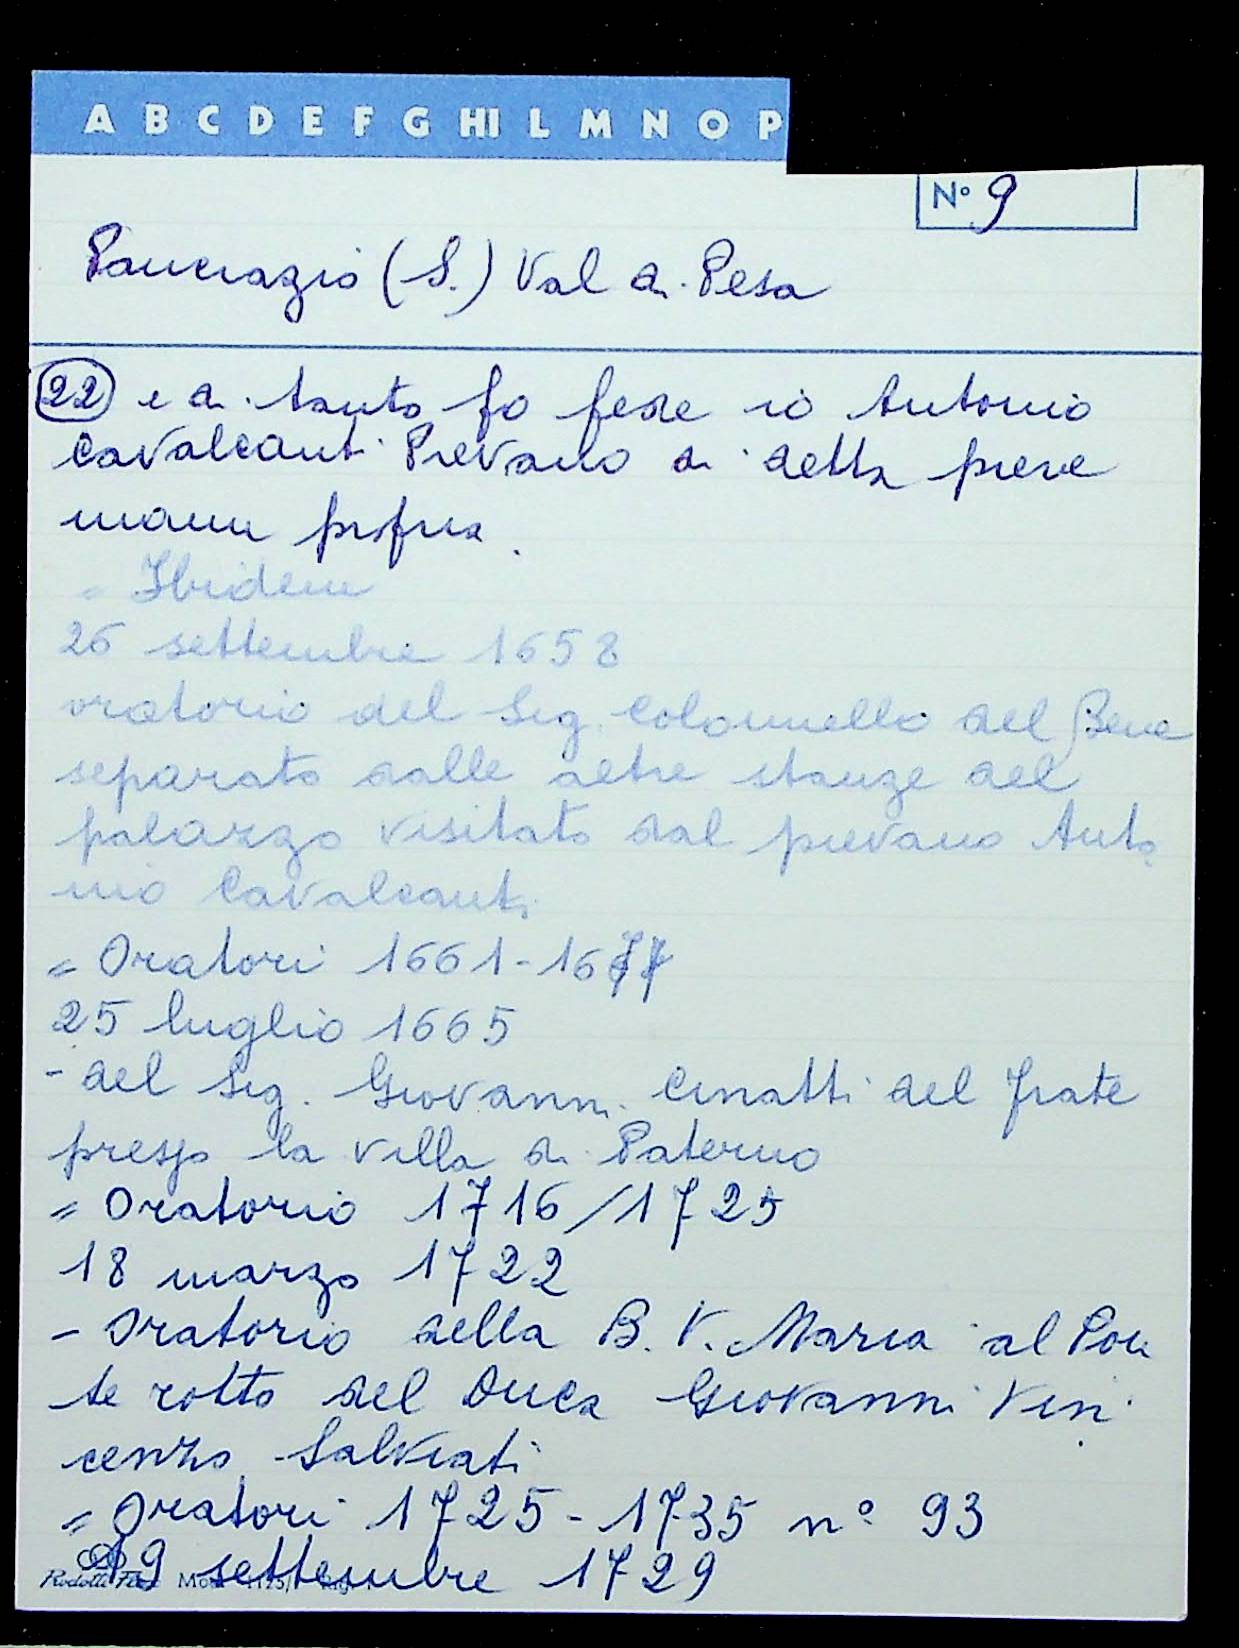 A B C D E F G HI L M N O P
N° 9
Pancrazio (S.) Val di Pesa
22 e di tanto fo fede io Antonio
Cavalcanti Pievano di detta pieve
manu propria.
= Ibidem
26 settembre 1658
oratorio del Sig. Colonnello del Bene
separato dalle altre stanze del
palazzo visitato dal pievano Anto
nio Cavalcanti
= Oratori 1661-1677
25 luglio 1665
- del Sig. Giovanni Cinatti del Frate
presso la villa di Paterno
= Oratorio 1716/1725
18 marzo 1722
- Oratorio della B. V. Maria al Pon
te rotto del Duca Giovanni Vin
cenzo Salviati
= Oratori 1725-1735 n° 93
19 settembre 1729